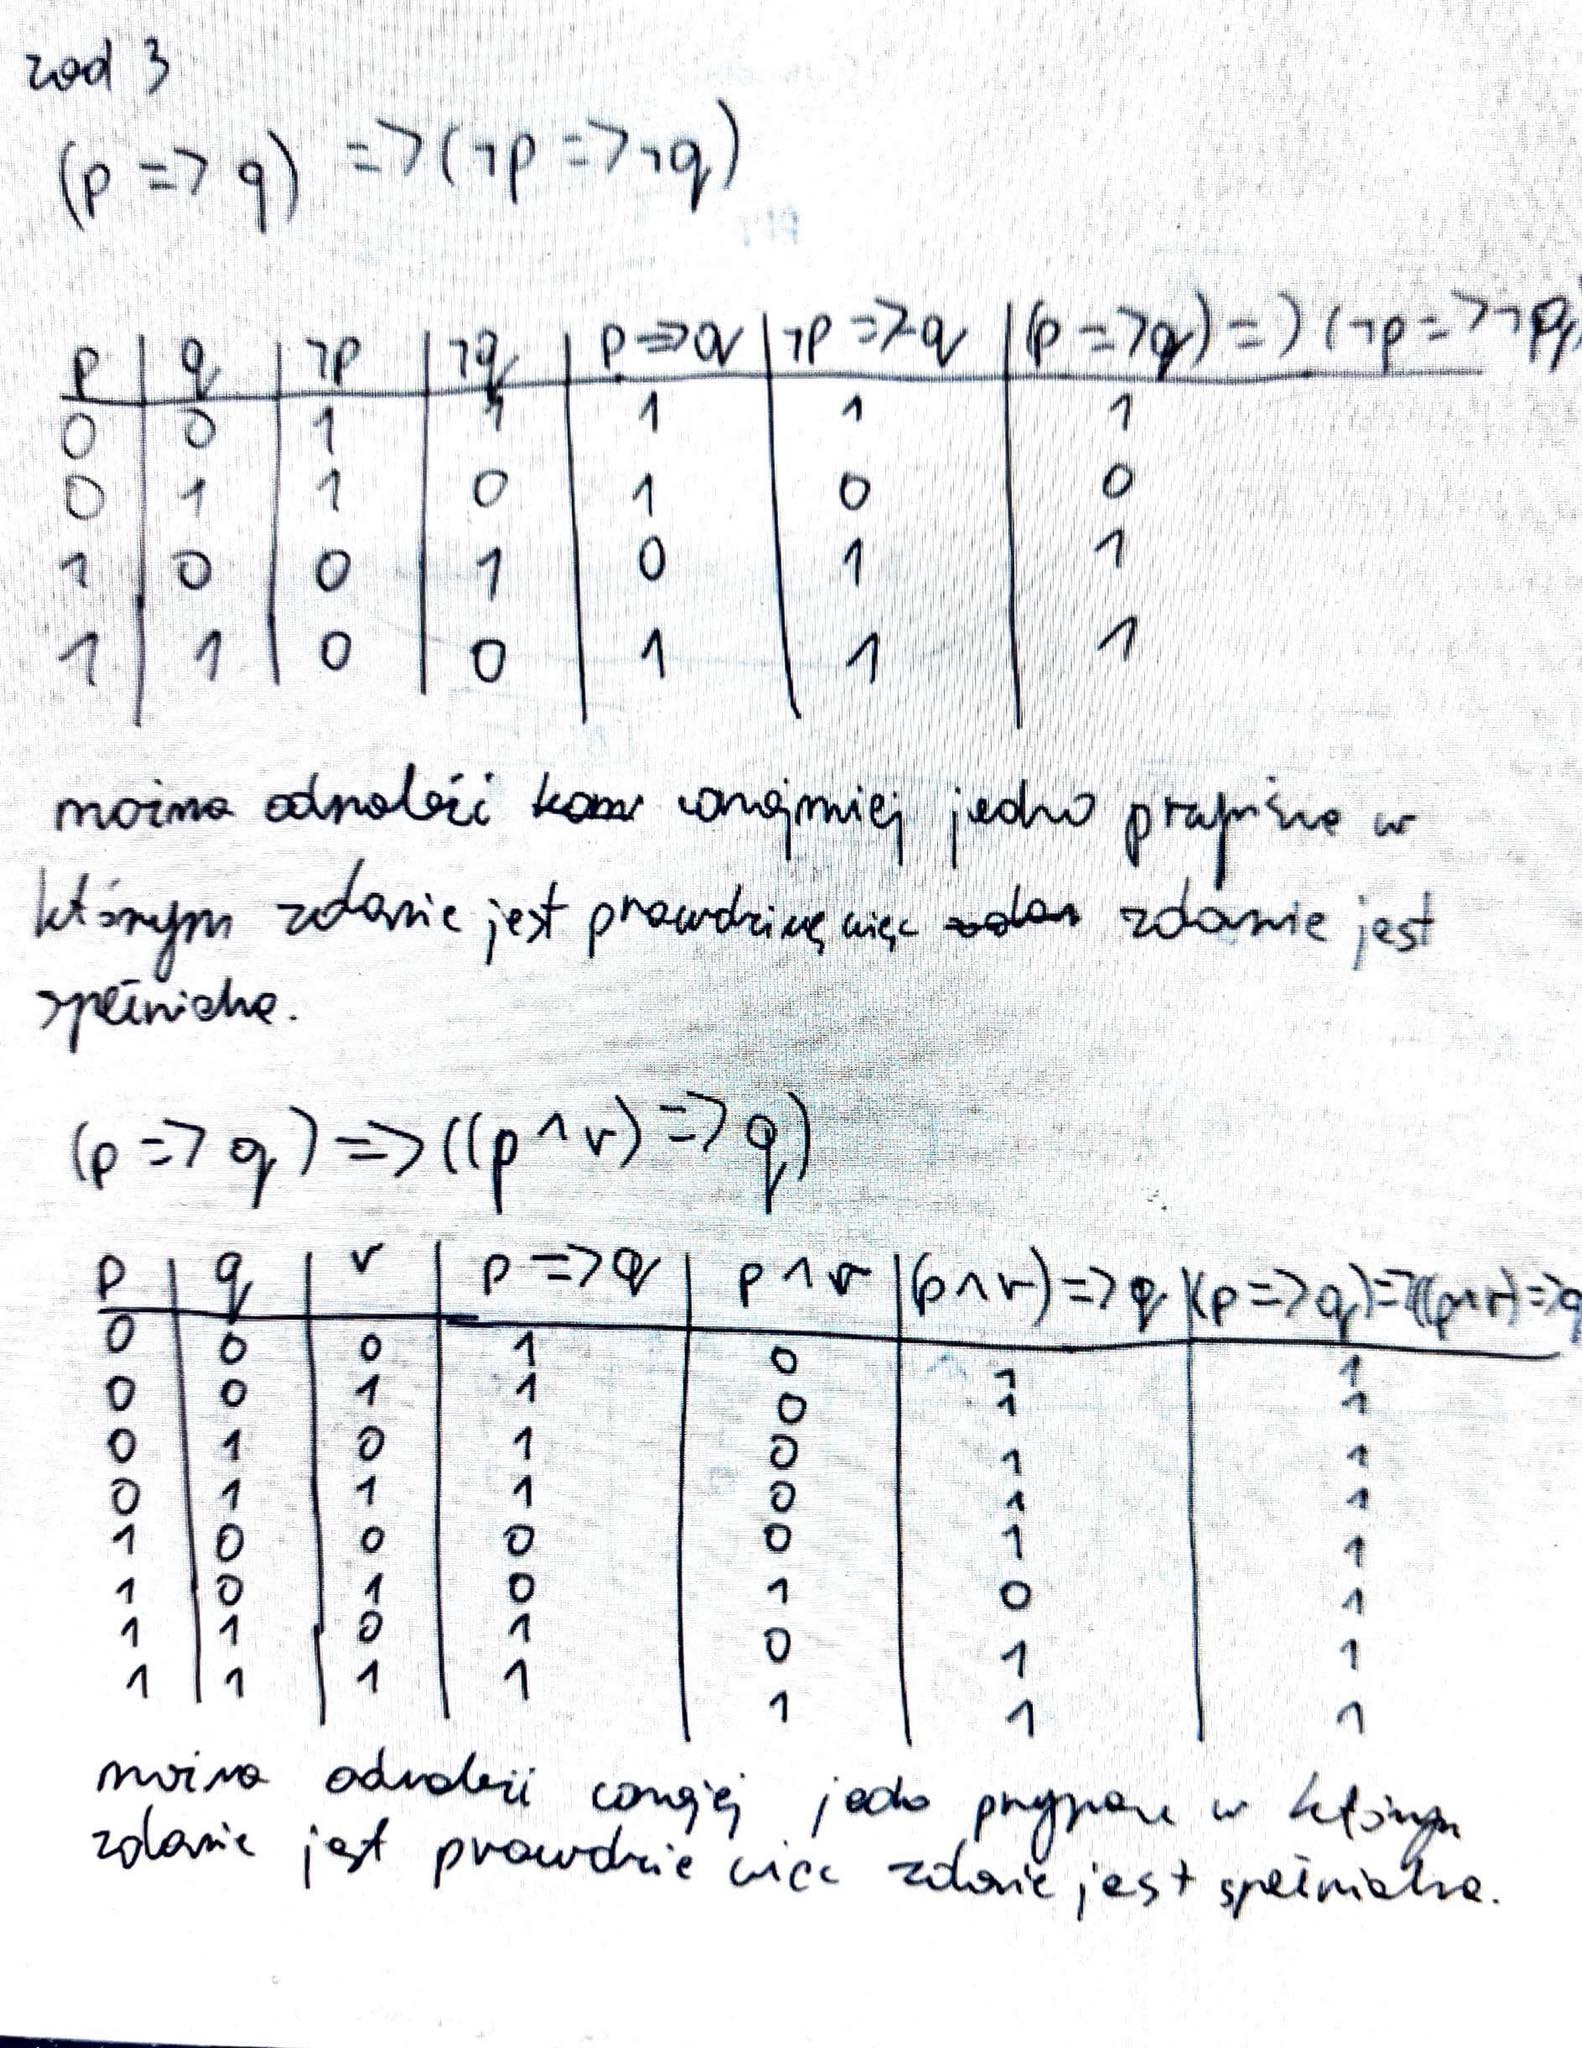 zad 3
(p => q) => (¬p => ¬q)
p | q | ¬p | ¬q | p => q | ¬p => ¬q | (p => q) => (¬p => ¬q)
0 0 1 1 1 1 1
0 1 1 0 1 0 0
1 0 0 1 0 1 1
1 1 0 0 1 1 1
można odnaleźć conajmniej jedno w
którym zdanie jest prawdziwe więc zdanie jest
spełnialne.
(p => q) => ((p ^ r) => q)
p | q | r | p => q | p ^ r | (p ^ r) => q | (p => q) => ((p ^ r) => q
0 0 0 1 0 1 1
0 0 1 1 0 1 1
0 1 0 1 0 1 1
0 1 1 1 0 1 1
1 0 0 0 0 1 1
1 0 1 0 1 0 1
1 1 0 1 0 1 1
1 1 1 1 1 1 1
można odnaleźć jedno w którym
zdanie jest prawdzie więc zdanie jest spełnialne.